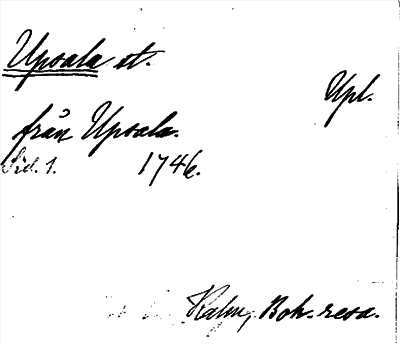 Upsala st.
Upl.
från Upsala.
Sid. 1. 1746.
Kalm, Boh. resa.